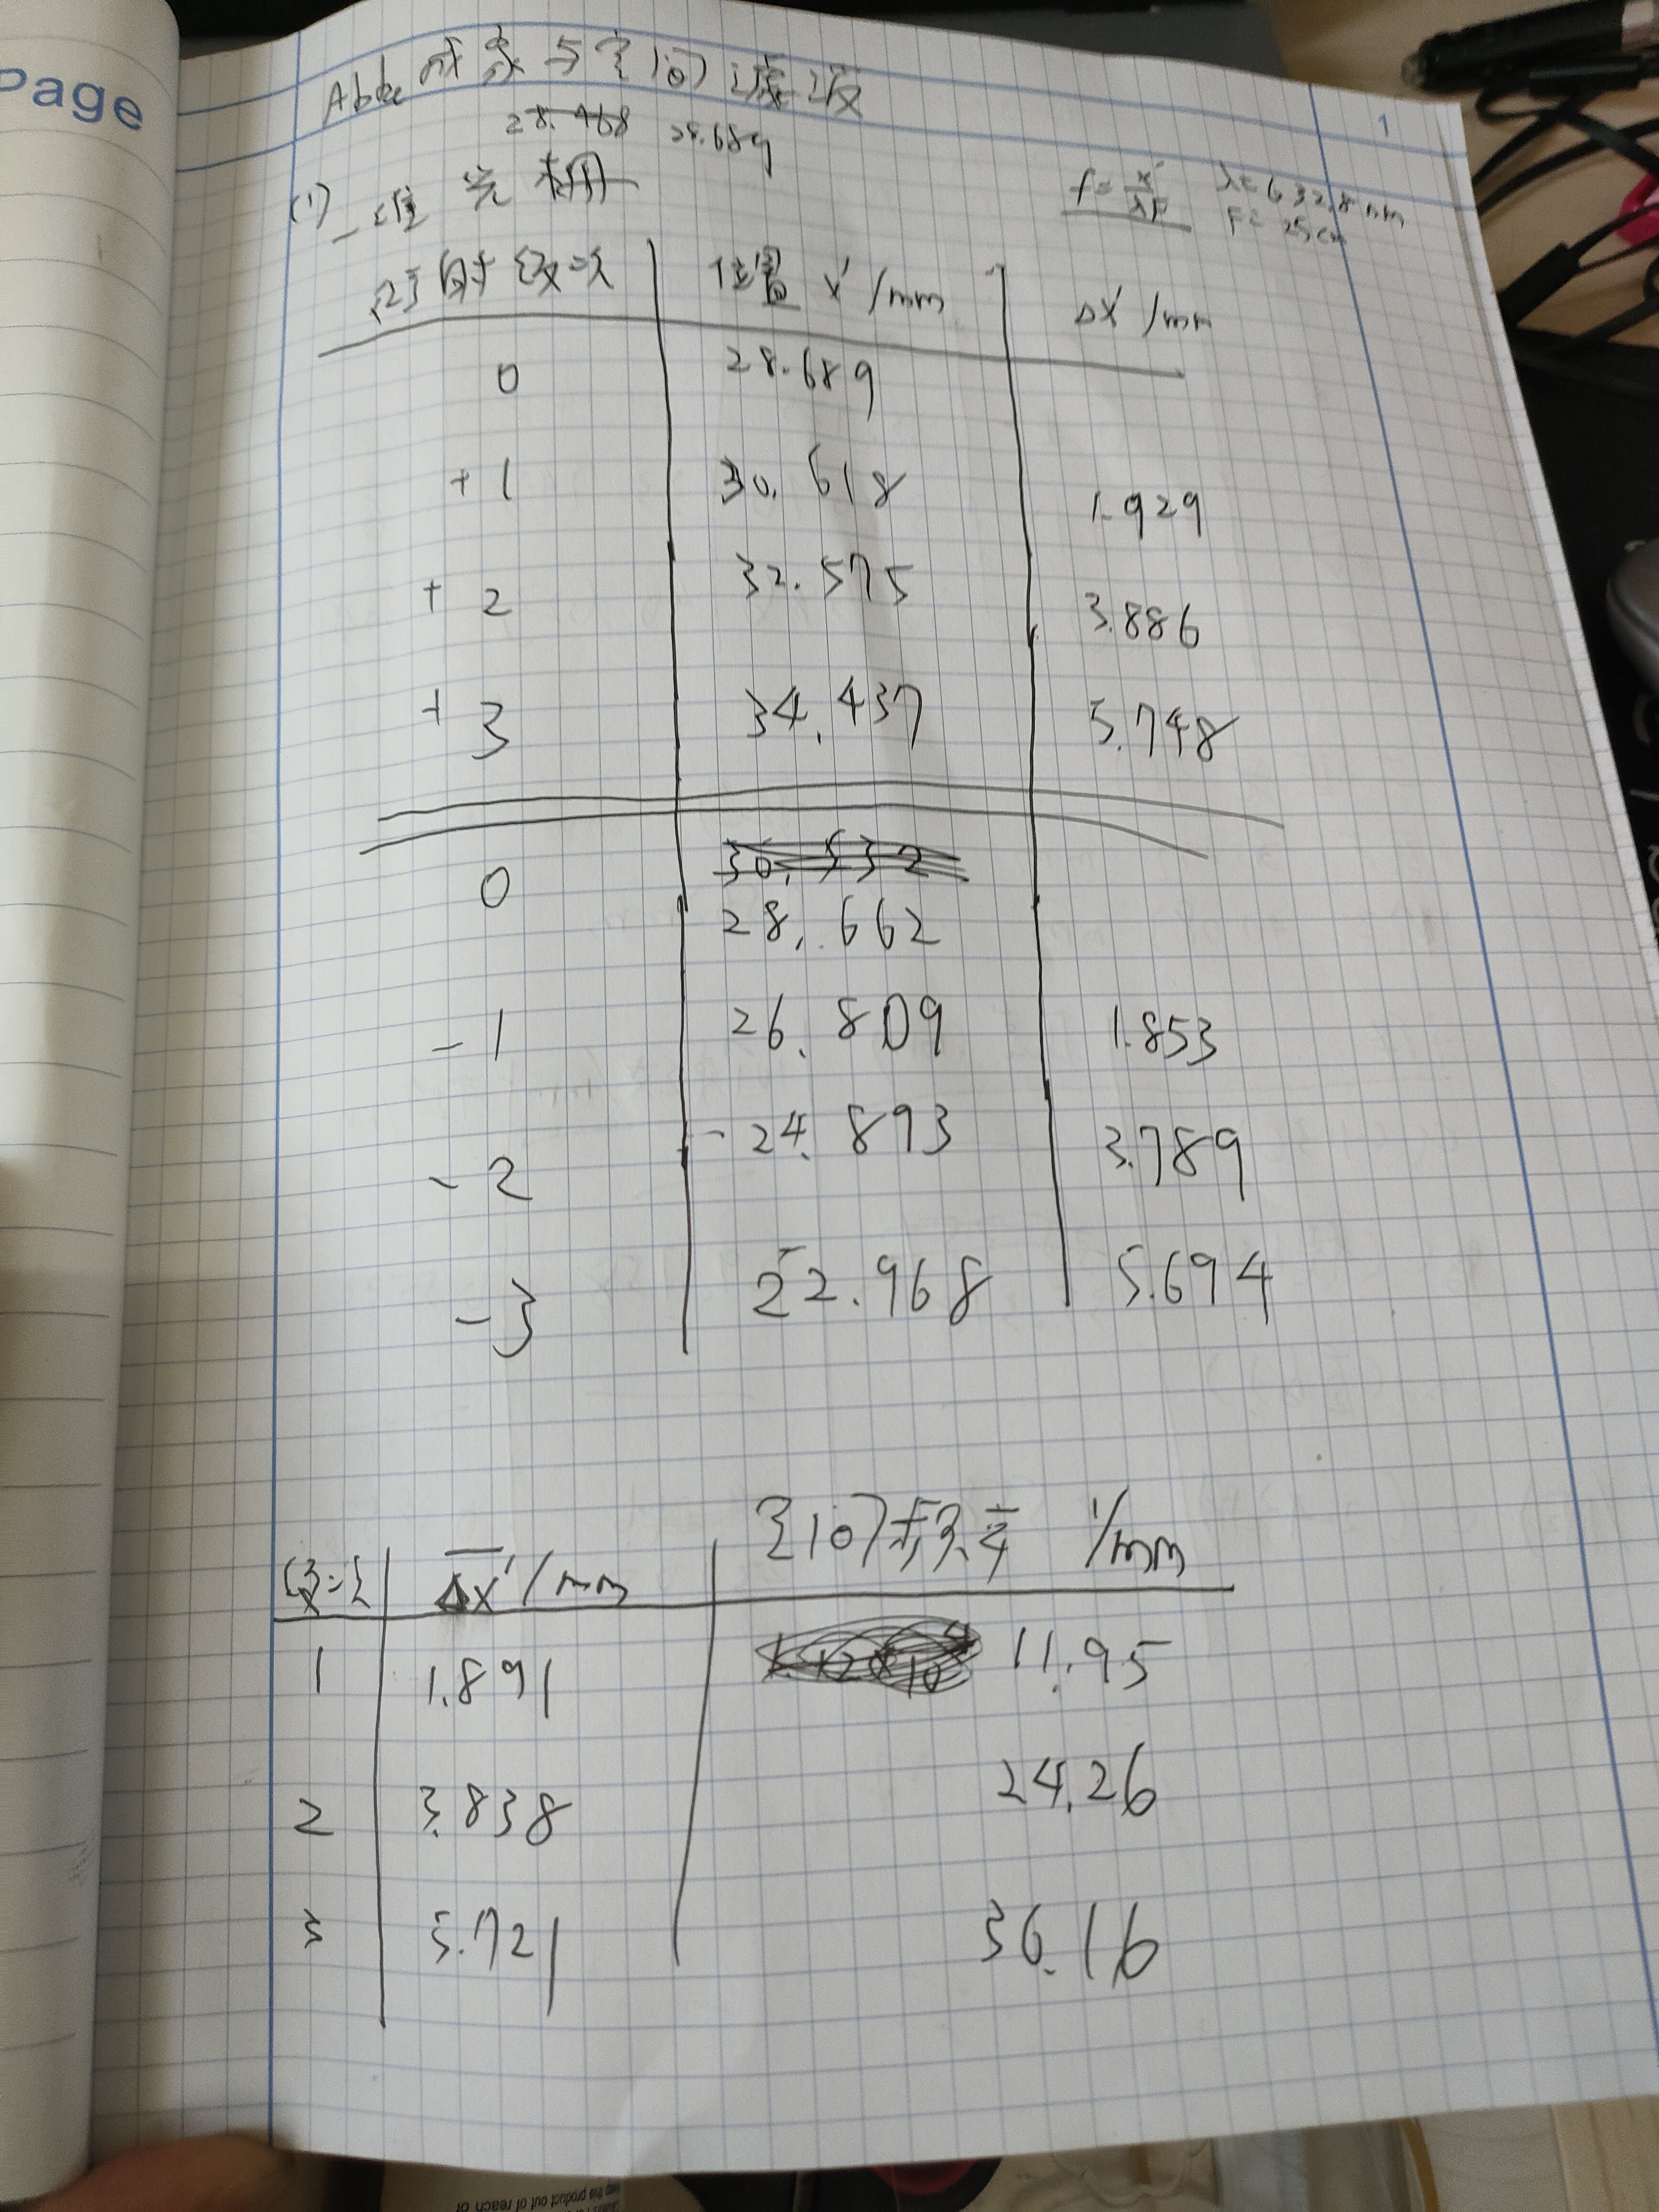 Page
Abbe 成象与空间滤波
1
28.468 28.689
(1) 一维光栅
f = x'/λF λ=632.8nm
F=25cm
衍射级次 位置 x'/mm Δx'/mm
0 28.689
+1 30.618 1.929
+2 32.575 3.886
+3 34.437 5.748
30.532
0 28.662
-1 26.809 1.853
-2 -24.893 3.789
-3 22.968 5.694
级次 Δx'/mm 空间频率 1/mm
1 1.891 11.95
2 3.838 24.26
3 5.721 36.16
product out of reach of